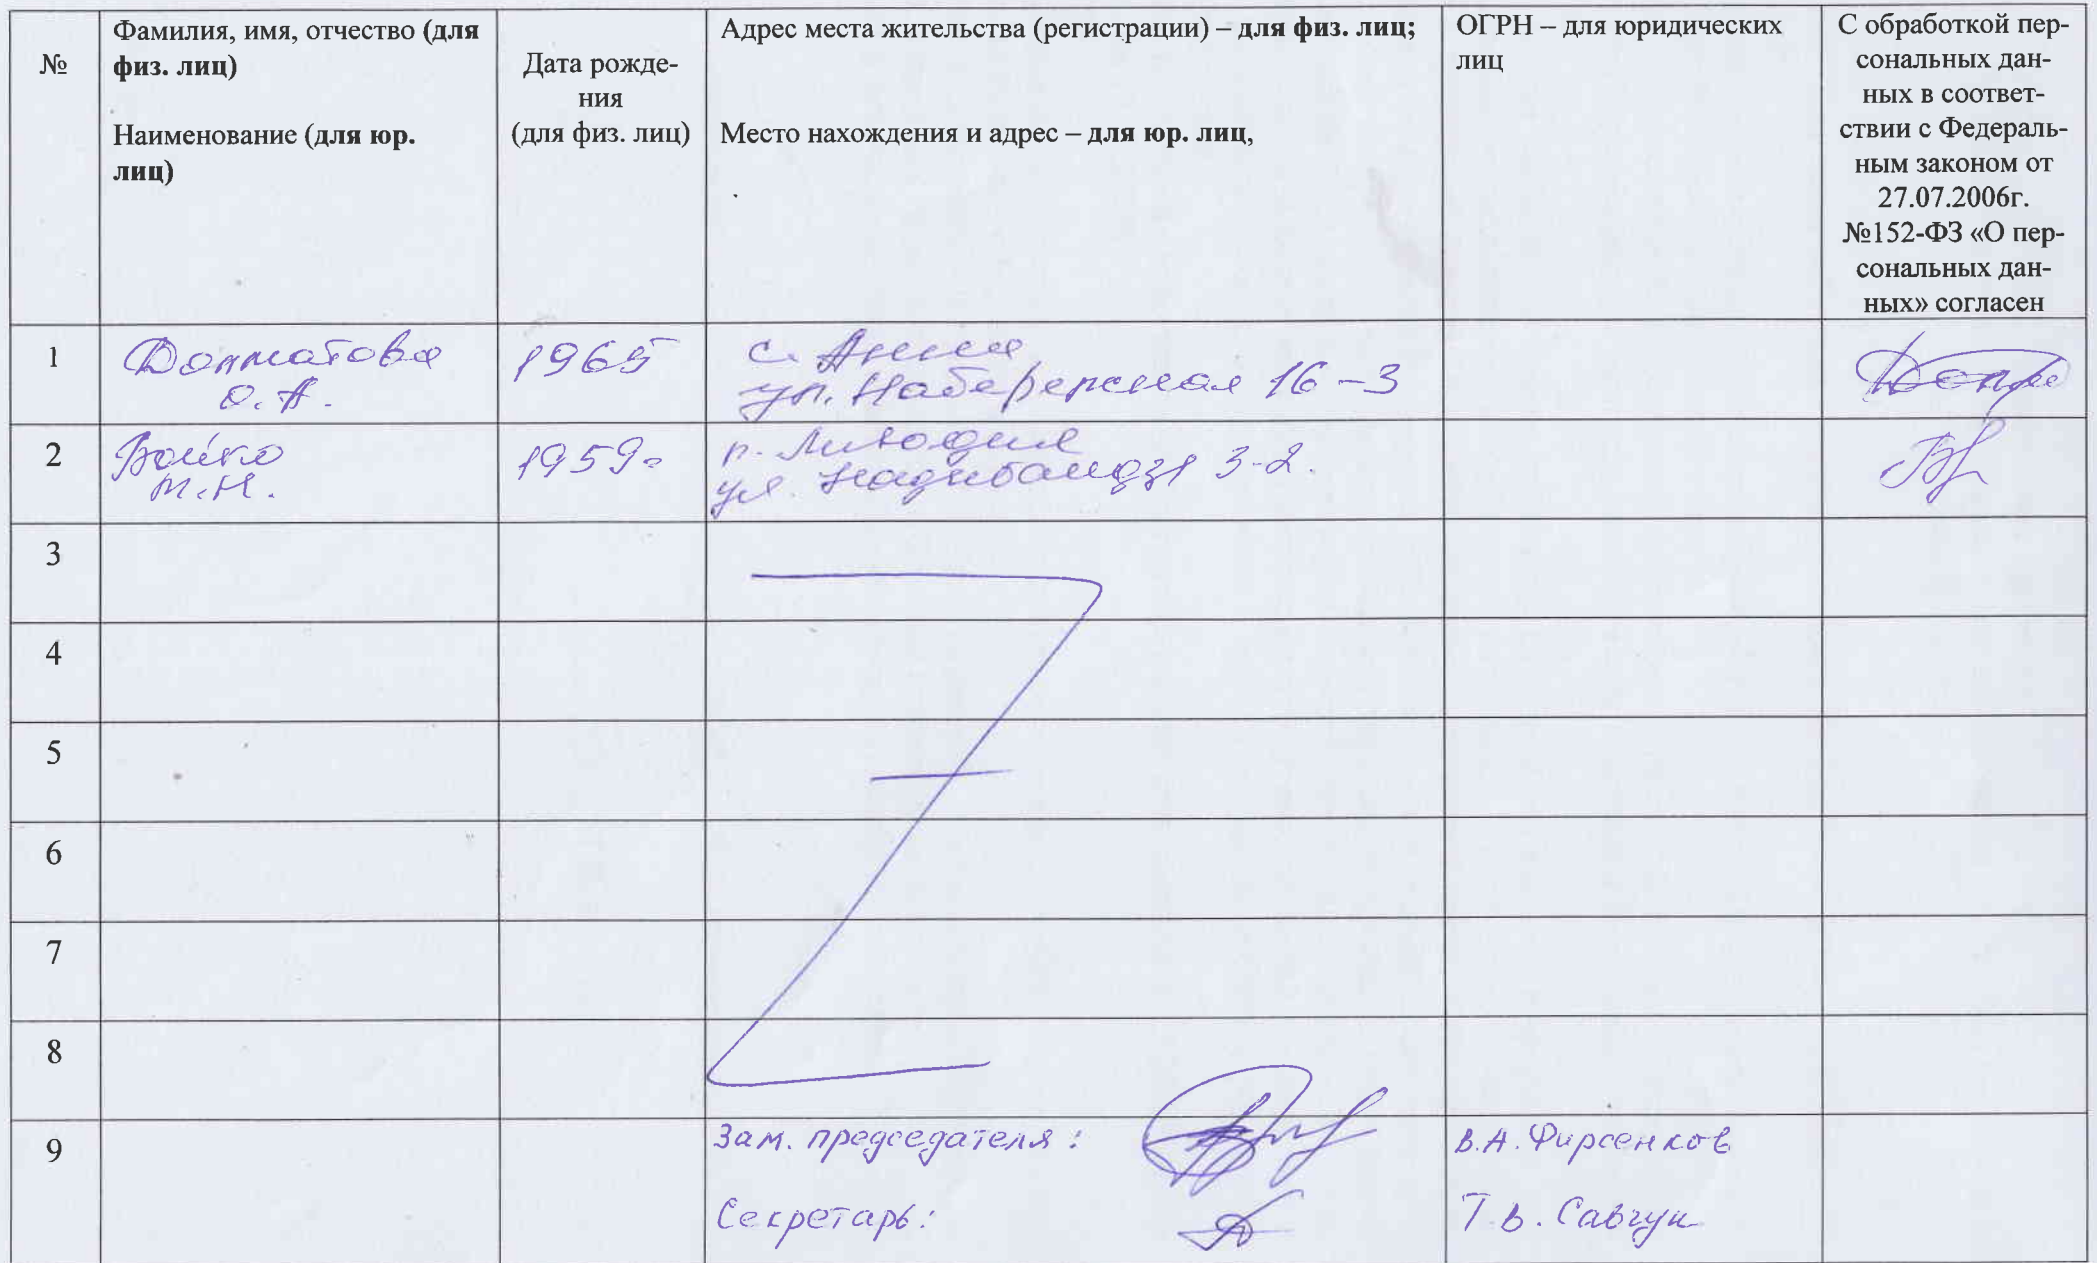 №
Фамилия, имя, отчество (для
физ. лиц)
Наименование (для юр.
лиц)
Дата рожде-
ния
(для физ. лиц)
Адрес места жительства (регистрации) – для физ. лиц;
Место нахождения и адрес – для юр. лиц,
ОГРН – для юридических
лиц
С обработкой пер-
сональных дан-
ных в соответ-
ствии с Федераль-
ным законом от
27.07.2006г.
№152-ФЗ «О пер-
сональных дан-
ных» согласен
1
Долматова
О.А.
1965
с. Анна
ул. Набережная 16-3
2
Бойко
М.Н.
1959г
п. Ливадия
ул. 3-2.
3
4
5
6
7
8
9
Зам. председателя:
В.А. Фирсенков
Секретарь:
Т.В. Савчук